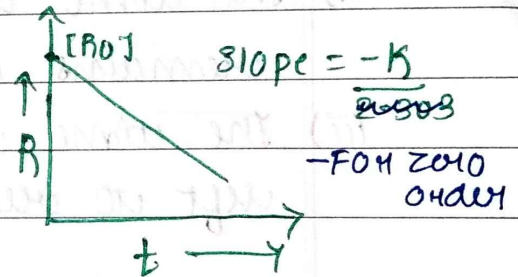 [R0]
slope = -K
2.303
R
-For zero
order
t